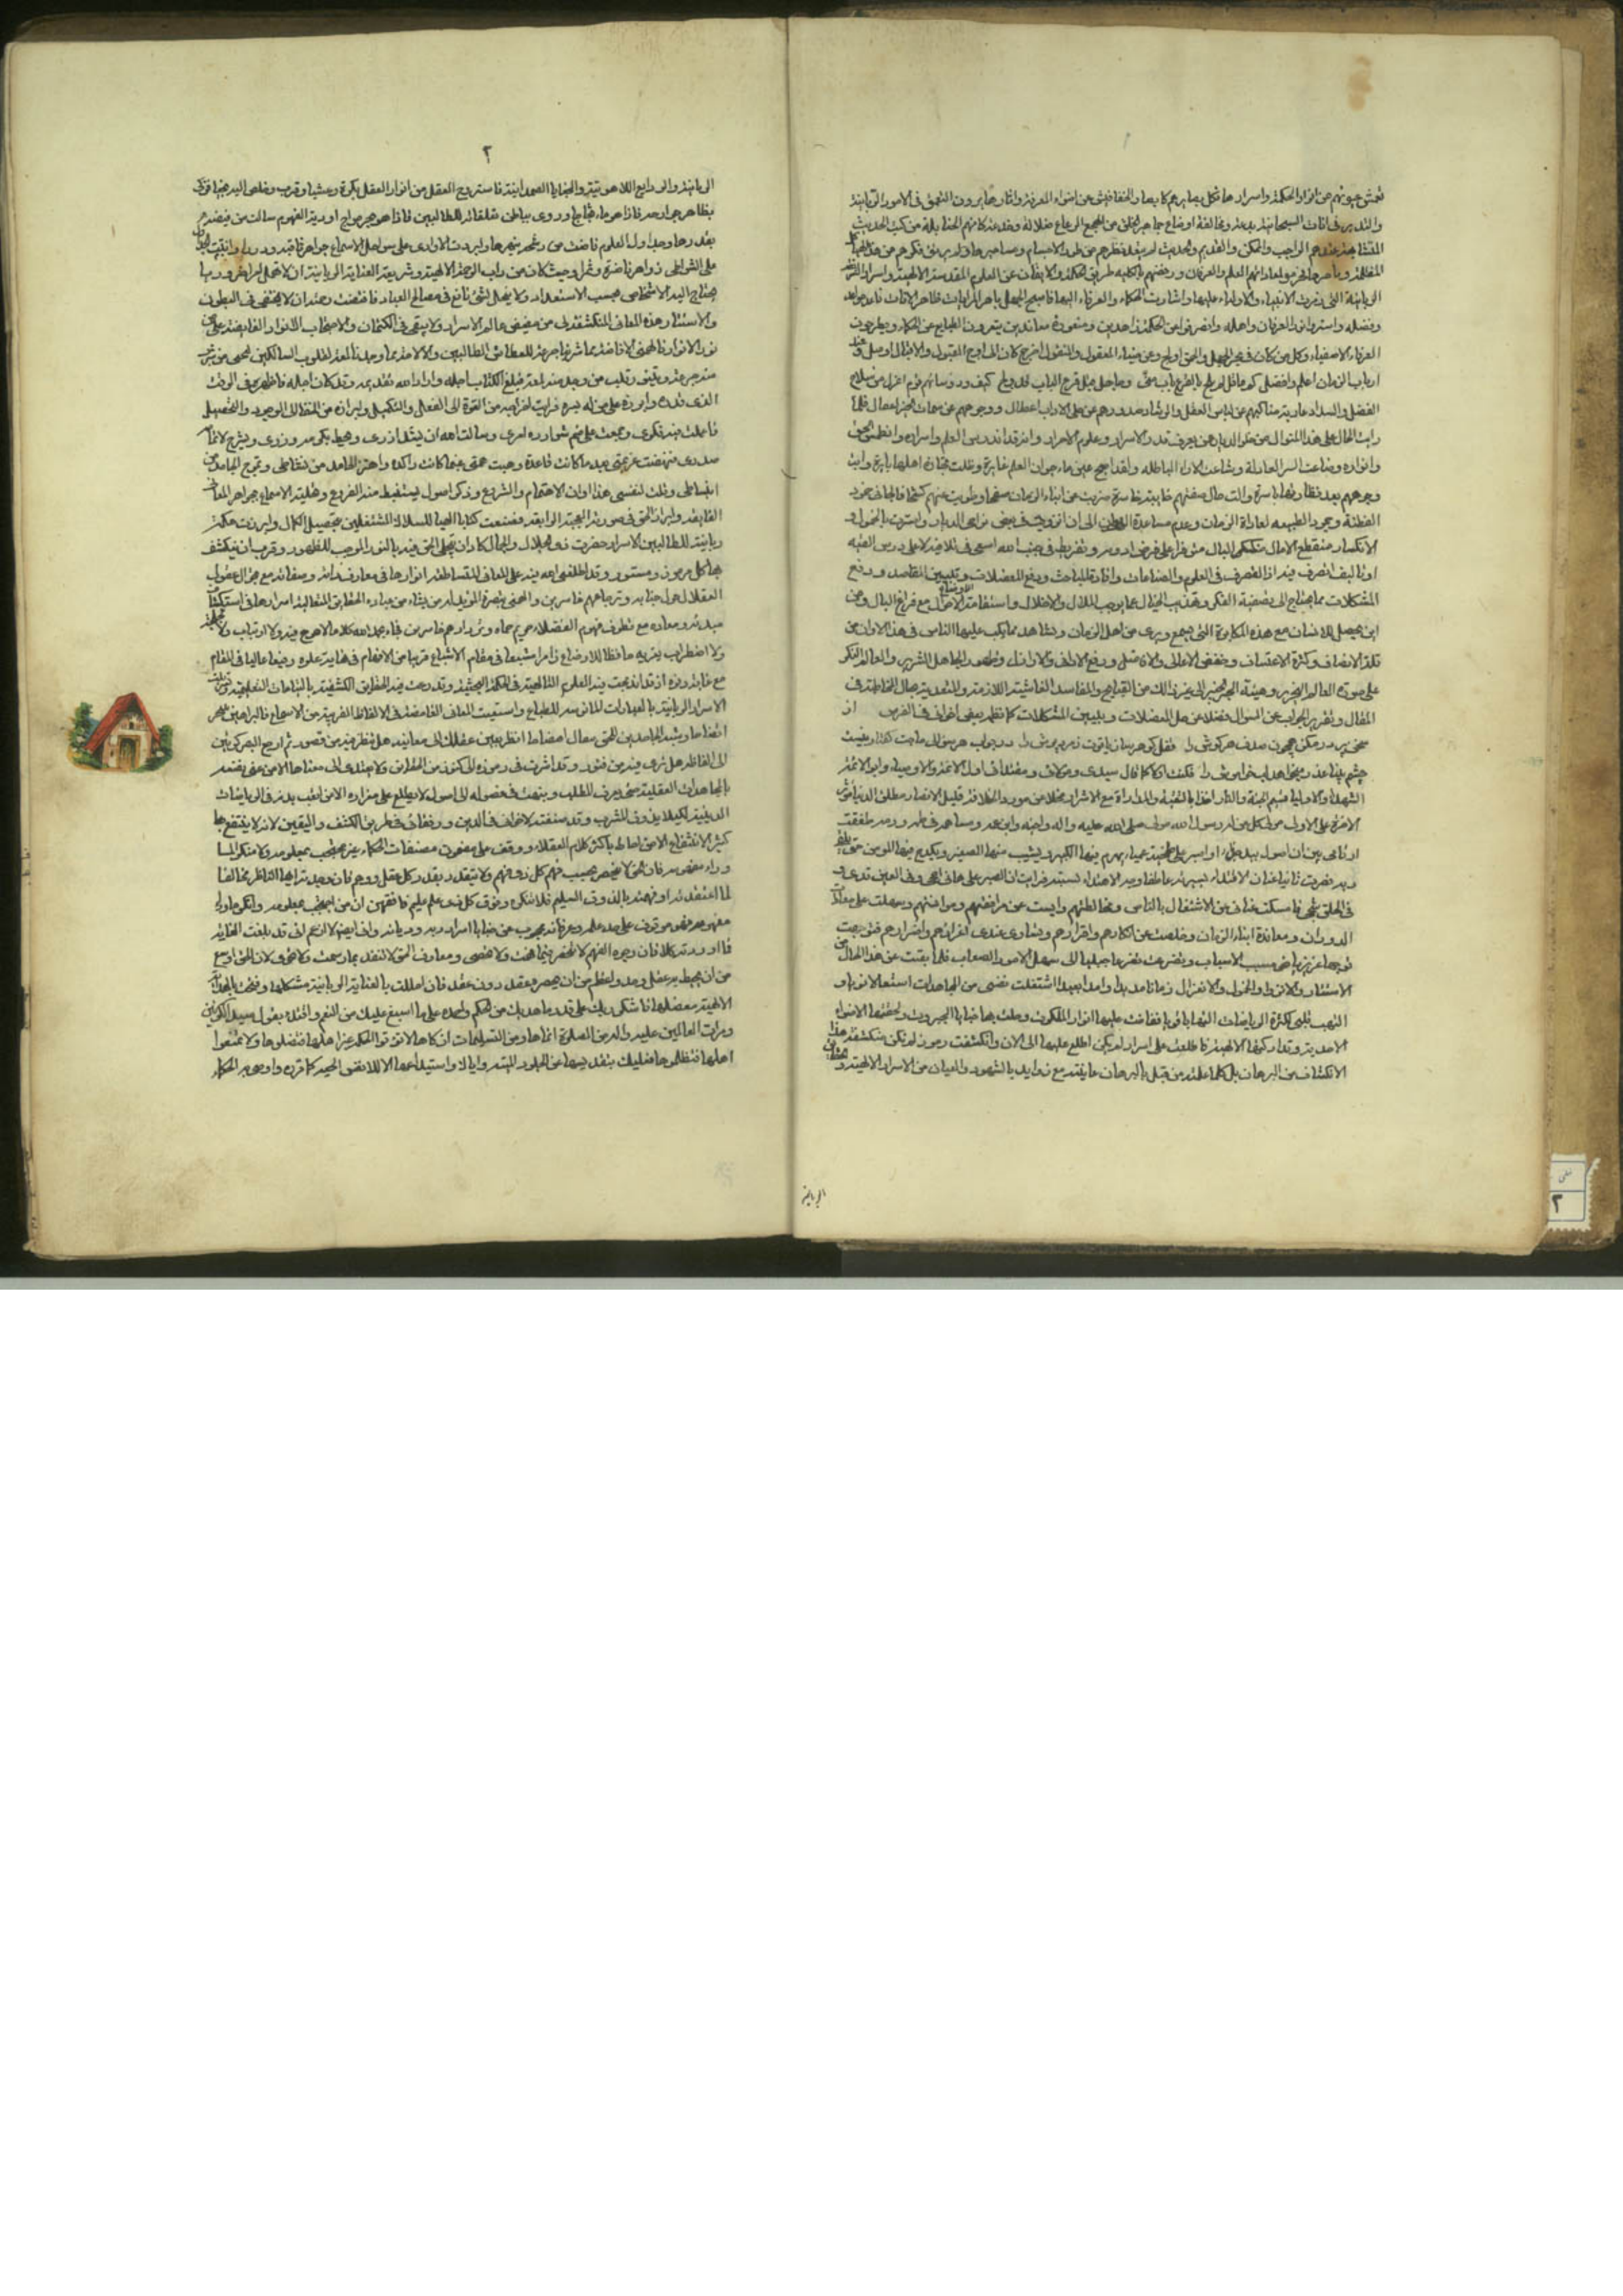 تعمش عيونهم من انوار الحكمة واسرارها تكل بصائرهم كابصار الخفافيش عن اضواء المعرفة واثارها يرون التعمق في الامور الربانية
والتدبر في الايات السبحانية بدعة ومخالفة اوضاع جماهير الخلق من الهمج الرعاع ضلالة وخدعة كانهم الحنابلة من كتب الحديث
المتشابه عندهم الواجب والممكن والقديم والحديث لم يتعد نظرهم عن طور الاجسام ومساميرها ولم يرتق فكرهم عن هذه الهياكل
المظلمة ودياجيرها فحرموا لمعاداتهم العلم والعرفان ورفضهم بالكلية طريق الحكمة والايقان عن العلوم المقدسة الالهية والاسرار الشريفة
الربانية التي رمزت الانبياء والاولياء عليها واشارت الحكماء والعرفاء اليها فاصبح الجهل باهر الرايات ظاهر الايات فاعدموا
وفضله واسترذلوا العرفان واهله وانصرفوا عن الحكمة زاهدين ومنعوها معاندين ينفرون الطبايع عن الحكماء ويطرحون
العرفاء الاصفياء وكل من كان في بحر الجهل والحمق اولج وعن ضياء المعقول والمنقول اخرج كان الى اوج القبول والاقبال اوصل وعند
ارباب الزمان اعلم وافضل كم عالم لم يلج بالقرع باب منى وجاهل قبل قرع الباب قد ولج كيف ورؤساؤهم قوم اعزل من سلاح
الفضل والسداد عارية مناكبهم عن لباس العقل والرشاد صدورهم عن حلى الاداب اعطال ووجوههم عن سمات الخير اغفال فلما
رايت الحال على هذا المنوال من خلو الديار عمن يعرف قدر الاسرار وعلوم الاحرار وانه قد اندرس العلم واسراره وانطمس الحق
وانواره وضاعت السير العادلة وشاعت الاراء الباطلة ولقد اصبح عين ماء حيوان العلم غايرة وظلت تجارة اهلها بايرة وابت
وجوههم بعد نضارتها باسرة والت حال صفقتهم خايبة خاسرة ضربت عن ابناء الزمان صفحا وطويت عنهم كشحا فالجاني خمود
الفطنة وجمود الطبيعة لمعاداة الزمان وعدم مساعدة الدوران الى ان انزويت في بعض نواحي الديار واستترت بالخمول و
الانكسار منقطع الامال منكسر البال متوفرا على فرض اؤديه وتفريط في جنب الله اسعى في تلافيه لا على درس القيه
او تاليف اتصرف فيه اذ التصرف في العلوم والصناعات وافادة المباحث ودفع المعضلات وتبيين المقاصد ورفع
المشكلات مما يحتاج الى تصفية الفكر وتهذيب الخيال عما يوجب الملال والاختلال واستقامة الاوضاع والاحوال مع فراغ البال ومن
اين يحصل للانسان مع هذه المكاره التي يسمع ويرى من اهل الزمان ويشاهد مما يكب عليها الناس في هذا الاوان من
قلة الانصاف وكثرة الاعتساف وخفض الاعالي والافاضل ورفع الاداني والاراذل وظهور الجاهل الشرير والعامي النكير
على صورة العالم النحرير وهيئة الحبر الخبير الى غير ذلك من القبايح والمفاسد الفاشية اللازمة والمتعدية مجال المخاطبة في
المقال وتقرير الجواب عن السؤال فضلا عن حل المعضلات وتبيين المشكلات كما نظمه بعض اخواني في الفرس از
سخن پر در مكن همچون صدف هر گوش را قفل گوهر ساز ياقوت زمرد پوش را در جواب هر سؤال حاجت گفتار نيست
چشم بينا عذر ميخواهد لب خاموش را فكنت اولا كما قال سيدي ومولاي ومعتمدي اول الائمة والاوصياء وابو الائمة
الشهداء والاولياء قسيم الجنة والنار اخذا بالتقية والمداراة مع الاشرار مخلا عن مورد الخلافة قليل الانصار مطلق الدنيا مؤثر
الاخرة على الاولى مولى كل من كان رسول الله مولى صلى الله عليه واله واخيه وابن عمه ومساهمه في طمه ورمه طفقت
ارتاى بين ان اصول بيد جذاء او اصبر على طخية عمياء يهرم فيها الكبير ويشيب فيها الصغير ويكدح فيها المؤمن حتى يلقى
ربه فصرت ثانيا عنان الاقتداء بسيرته عاطفا وجه الاهتداء بسنته فرايت ان الصبر على هاتي احجى وفي العين قذى و
في الحلق شجى فامسكت عناني عن الاشتغال بالناس ومخالطتهم وايست عن مرافقتهم ومؤانستهم وسهلت على معاداة
الدوران ومعاندة ابناء الزمان وخلصت عن انكارهم واقرارهم وتساوى عندي اعزازهم واضرارهم فتوجهت
توجها غريزيا نحو مسبب الاسباب وتضرعت تضرعا جبليا الى مسهل الامور الصعاب فلما بقيت على هذا الحال من
الاستتار والانزواء والخمول والاعتزال زمانا مديدا وامدا بعيدا اشتعلت نفسي من المجاهدات اشتعالا نوريا و
التهب قلبي لكثرة الرياضات التهابا قويا ففاضت عليها انوار الملكوت وحلت بها خبايا الجبروت ولحقتها الاضواء
الاحدية وتداركتها الالهية فاطلعت على اسرار لم يكن اطلع عليها الى الان وانكشفت رموز لم تكن منكشفة هذا
الانكشاف من البرهان بل كلما علمته من قبل بالبرهان عاينته مع زوايد بالشهود والعيان من الاسرار الالهية والحقايق
الربانية
٢
الربانية والودايع اللاهوتية والخبايا الصمدانية فاستروح العقل من انوار العقل بكرة وعشيا وقرب وخلص اليه نجيا فزكى
بظاهر جوارحه فاذا هو ماء ثجاج وزوى بباطن تعلقاته للطالبين فاذا هو بحر مواج اودية الفهوم سالت من فيضه
بقدرها وجداول العلوم فاضت من رشحه بنهرها وابرزت الاوادي على سواحل الاسماع جواهر ثاقبة ودررا وانبتت
على الشواطي زواهر ناضرة وثمرا وحيث كان من داب الرحمة الالهية وشريعة العناية الربانية ان لا تهمل امرا ضروريا
يحتاج اليه الاشخاص بحسب الاستعداد ولا يبخل بشئ نافع في مصالح العباد فاقتضت رحمته ان لا يختفي في البطون
والاستتار هذه المعاني المنكشفة لي من مفيض عالم الاسرار ولا يبقى في الكتمان والاحتجاب الانوار الفايضة على من
نور الانوار فالهمني الافاضة مما شربنا جرعة للعطاش الطالبين والالاحة مما وجدنا لمعة لقلوب السالكين ليحيى من شرب
منه جرعة ويتنور قلب من وجد منه لمعة فبلغ الكتاب اجله واراد الله تقديمه وقد كان اجله فاظهره في الوقت
الذي قدره وابرزه على من له يسره فرايت اخراجه من القوة الى الفعل والتكميل وابرازه من الخفاء الى الوجود والتحصيل
فاعملت فيه فكري وجمعت على ضم شوارده امري وسالت الله ان يشد ازري ويحط بكرمه وزري ويشرح لاتمامه
صدري فنهضت عزيمتي بعد ما كانت قاعدة وهبت همتي غب ما كانت راكدة واهتز الخامد من نشاطي وتموج الجامد من
انبساطي وقلت لنفسي هذا اوان الاهتمام والشروع وذكر اصول يستنبط منها الفروع وتحلية الاسماع بجواهر المعاني
الفايقة وابراز الحق في صورته المعجبة الرايقة فصنعت كتابا الهيا للسلاك المشتغلين بتحصيل الكمال وابرزت حكمة
ربانية للطالبين لاسرار حضرت ذي الجلال والجمال كاد ان يتجلى الحق فيه بالنور الموجب للظهور وقرب ان ينكشف
بها كل مرموز ومستور وقد اطلعني الله فيه على المعاني المتساطعة انوارها في معارف ذاته وصفاته مع تجوال عقول
العقلاء حول جنابه وترجاعهم خاسرين والهمني بنصره المؤيد به من يشاء من عباده الحقايق المتعالية اسرارها في استكشاف
مبدئه ومعاده مع تطوف فهوم الفضلاء حريم حماه وتردادهم خاسرين فجاء بحمد الله كلاما لا عوج فيه ولا ارتياب ولا
ولا اضطراب يعتريه حافظا للاوضاع رامزا مشبعا في مقام الاشباع قريبا من الافهام في نهاية علوه رفيعا عاليا في المقام
مع غاية دنوه اذ قد اندمجت فيه العلوم التالهية في الحكمة البحثية وتدرعت فيه الحقايق الكشفية بالبيانات التعليمية
الاسرار الربانية بالعبارات المانوسة للطباع واستعملت المعاني الغامضة في الالفاظ القريبة من الاسماع فالبراهين تتبختر
اتضاحا وشبه الجاهلين للحق تتضاءل افتضاحا انظر بعين عقلك الى معانيه هل تنظر فيه من قصور ثم ارجع البصر كرتين
الى الفاظه هل ترى فيه من فتور وقد اشرت في رموزه الى كنوز من الحقايق ولا يهتدي الى معناها الا من عنى نفسه
بالمجاهدات العقلية حتى يعرف المطلب ونبهت في فصوله الى اصول لا يطلع على مغزاه الا من اتعب بدنه في الرياضات
الدينية لكيلا يذوق المشرب وقد صنفته لاخواني في الدين ورفقائي في طريق الكشف واليقين لانه لا ينتفع بها
كثير الانتفاع الا من احاط باكثر كلام العقلاء ووقف على مضمون مصنفات الحكماء غير محتجب بمعلومه ولا منكرا لما
وراء مفهومه فان الحق لا ينحصر بحسب فهم كل ذي فهم ولا يتقدر بقدر كل عقل ووهم فان وجدته ايها الناظر مخالفا
لما اعتقدته او فهمته بالذوق السليم فلا تنكره وفوق كل ذي علم عليم فافقهن ان من احتجب بمعلومه وانكر ما وراء
مفهومه فهو موقوف على حد علمه وعرفانه محجوب عن خبايا اسرار ربه وديانه واني ايضا لا ازعم اني قد بلغت الغاية
فيما اوردته كلا فان وجوه الفهم لا تنحصر فيما فهمت ولا تحصى ومعارف الحق لا تتقيد بما رسمت ولا تحوى لان الحق اوسع
من ان يحيط به عقل وحد واعظم من ان يحصره عقد دون عقد فان احللت بالعناية الربانية مشكلها وفتحت بالهداية
الالهية معضلها فاشكر ربك على قدر ما هداك من الحكم واحمده على ما اسبغ عليك من النعم واقتد بقول سيد الكونين
ومرآت العالمين عليه واله من الصلوة انماها ومن التسليمات ازكاها لا تؤتوا الحكمة غير اهلها فتضلوها ولا تمنعوا
اهلها فتظلموها فعليك بتقديسها عن الجلود الميتة واياك واستيداعها الا للانفس الحية كما قرره واوصى به الحكماء